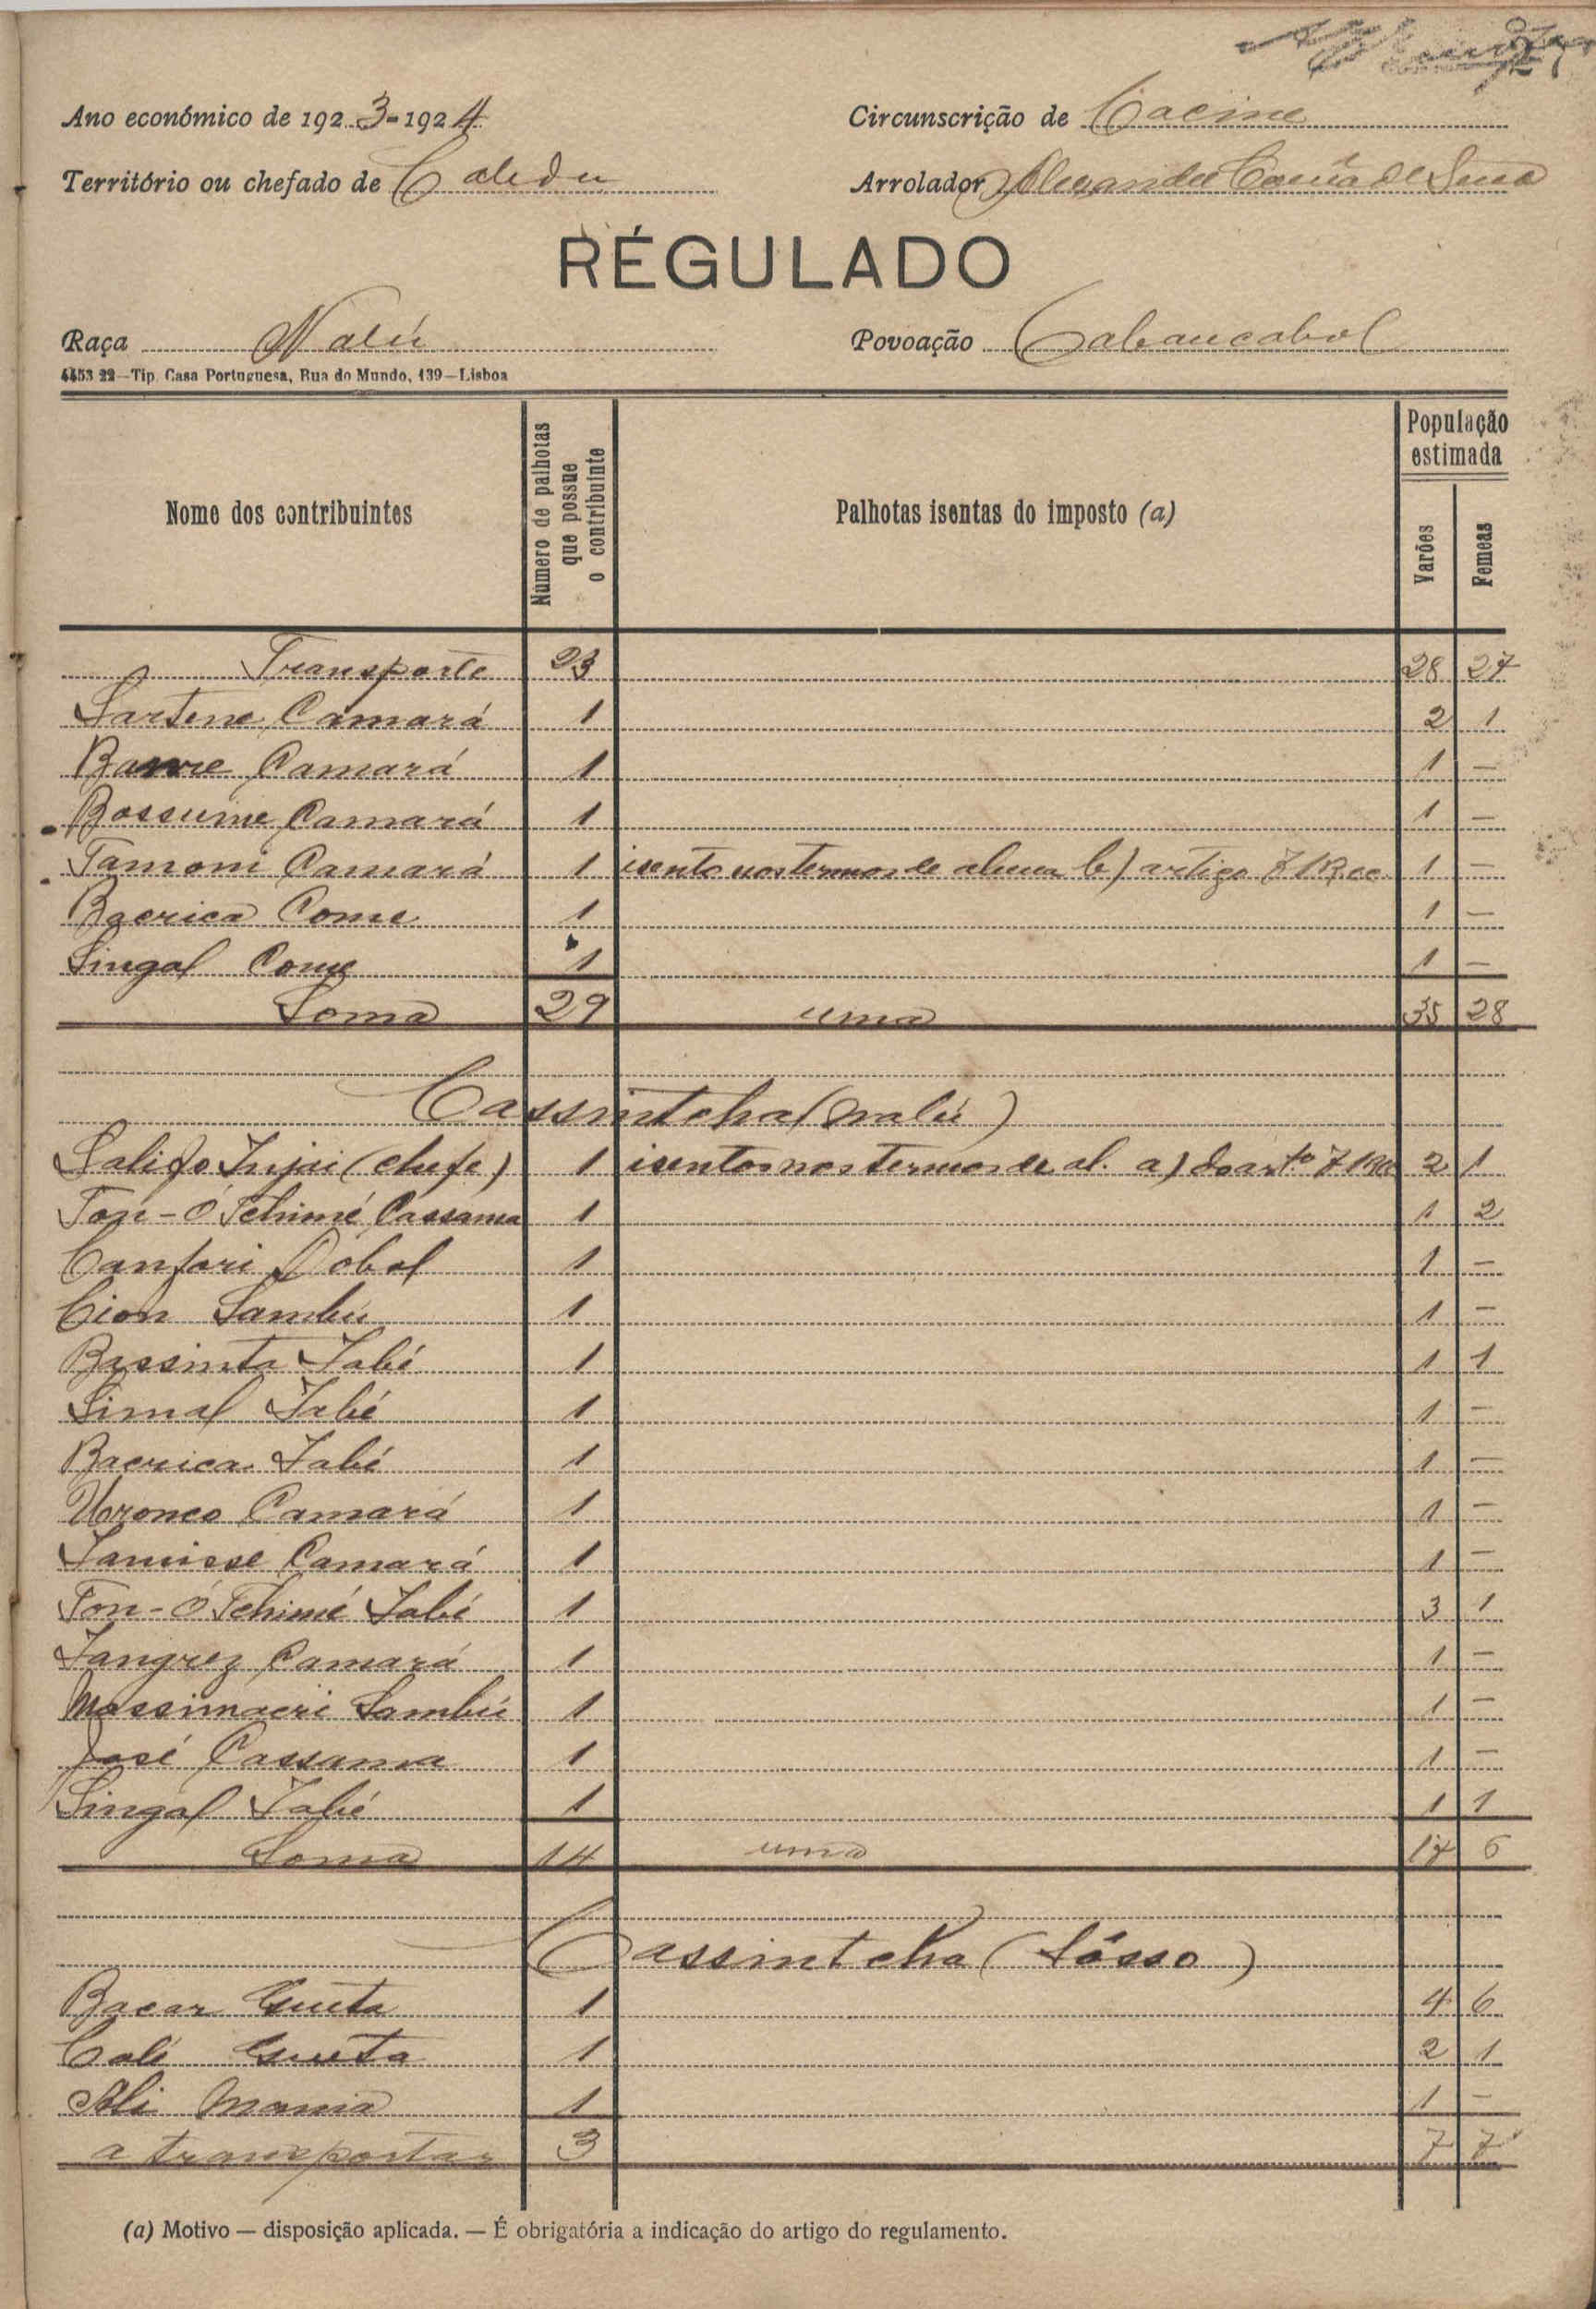 27
Ano económico de 1923-1924 Circunscrição de Cacine
Território ou chefado de Arrolador de Sena
RÉGULADO
Raça Nalú Povoação Cabancabol
4453 22—Tip. Casa Portuguesa, Rua do Mundo, 139—Lisboa
Nome dos contribuintes
Número de palhotas que possue o contribuinte
Palhotas isentas do imposto (a)
População estimada
Varões Femeas
Transporte 23 28 27
Lartene Camará 1 2 1
Camará 1 1 —
Bossume Camará 1 1 —
Tamoni Camará 1 isento nos termos de alinea b) artigo 7 1 —
Bacrica Come 1 1 —
Singal Come 1 1 —
Soma 29 uma 35 28
Cassintcha (nalú)
Salifo Injai (chefe) 1 isentos nos termos de al. a) do artº 7 2 1
Ton-Ó Tchimé Cassama 1 1 2
Canfori Dobol 1 1 —
Cion Sambú 1 1 —
Bassinta Jabé 1 1 1
Simal Jabé 1 1 —
Bacrica Jabé 1 1 —
Uronco Camará 1 1 —
Camará 1 1 —
Ton-Ó Tchimé Jabé 1 3 1
Tangrez Camará 1 1 —
Massimacri Sambú 1 1 —
José Cassama 1 1 —
Singal Jabé 1 1 1
Soma 14 uma 17 6
Cassintcha (Sôsso)
Bacar Gueta 1 4 6
Calé Gueta 1 2 1
Ali Mania 1 1 —
a transportar 3 7 7
(a) Motivo — disposição aplicada. — É obrigatória a indicação do artigo do regulamento.